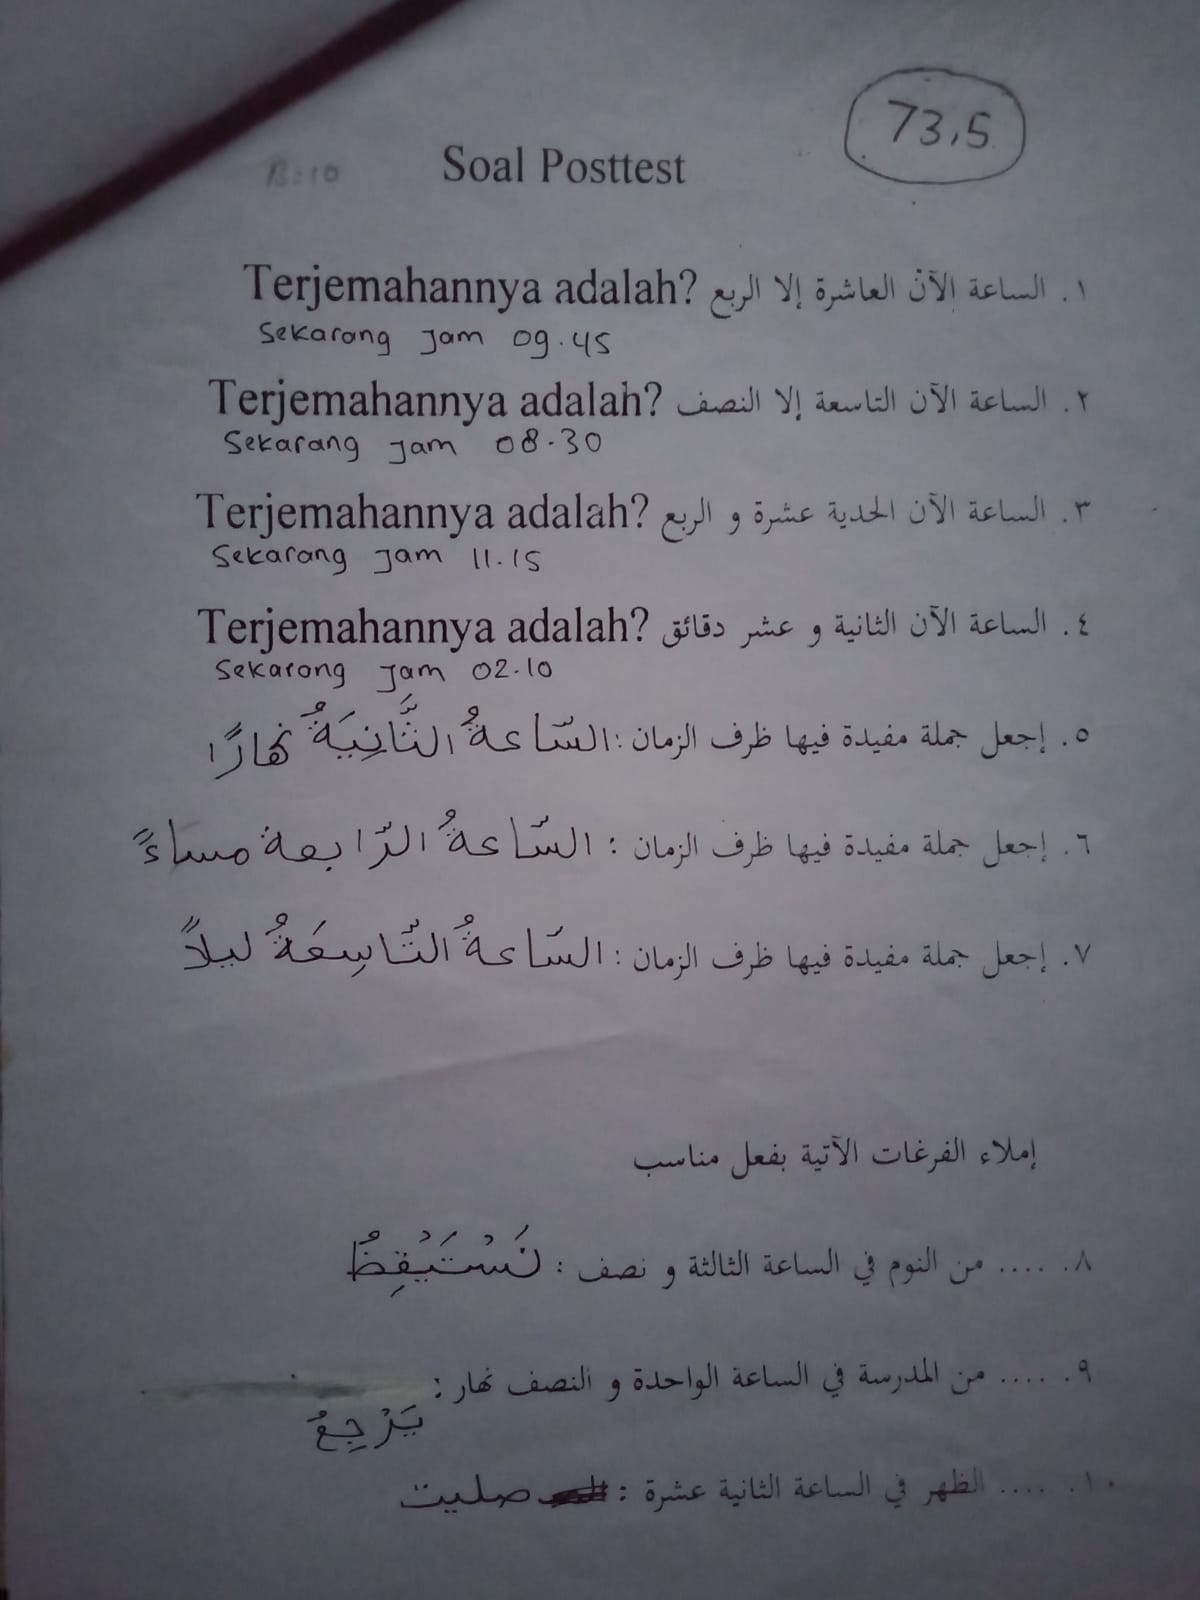 73,5
Soal Posttest
١. الساعة الآن العاشرة إلا الربع Terjemahannya adalah?
Sekarang jam 09.45
٢. الساعة الآن التاسعة إلا النصف Terjemahannya adalah?
Sekarang jam 08.30
٣. الساعة الآن الحدية عشرة و الربع Terjemahannya adalah?
Sekarang jam 11.15
٤. الساعة الآن الثانية و عشر دقائق Terjemahannya adalah?
Sekarang jam 02.10
٥. إجعل جملة مفيدة فيها ظرف الزمان : السّاعةُ الثَّانِيَةُ نهارًا
٦. إجعل جملة مفيدة فيها ظرف الزمان : السّاعةُ الرّابعة مساءً
٧. إجعل جملة مفيدة فيها ظرف الزمان : السَاعةُ التّاسِعَةُ ليلاً
إملاء الفرغات الآتية بفعل مناسب
٨. .... من النوم في الساعة الثالثة و نصف : نَسْتَيْقِظُ
٩. .... من المدرسة في الساعة الواحدة و النصف نهار :
يَرْجِعُ
١٠. .... الظهر في الساعة الثانية عشرة : صليت